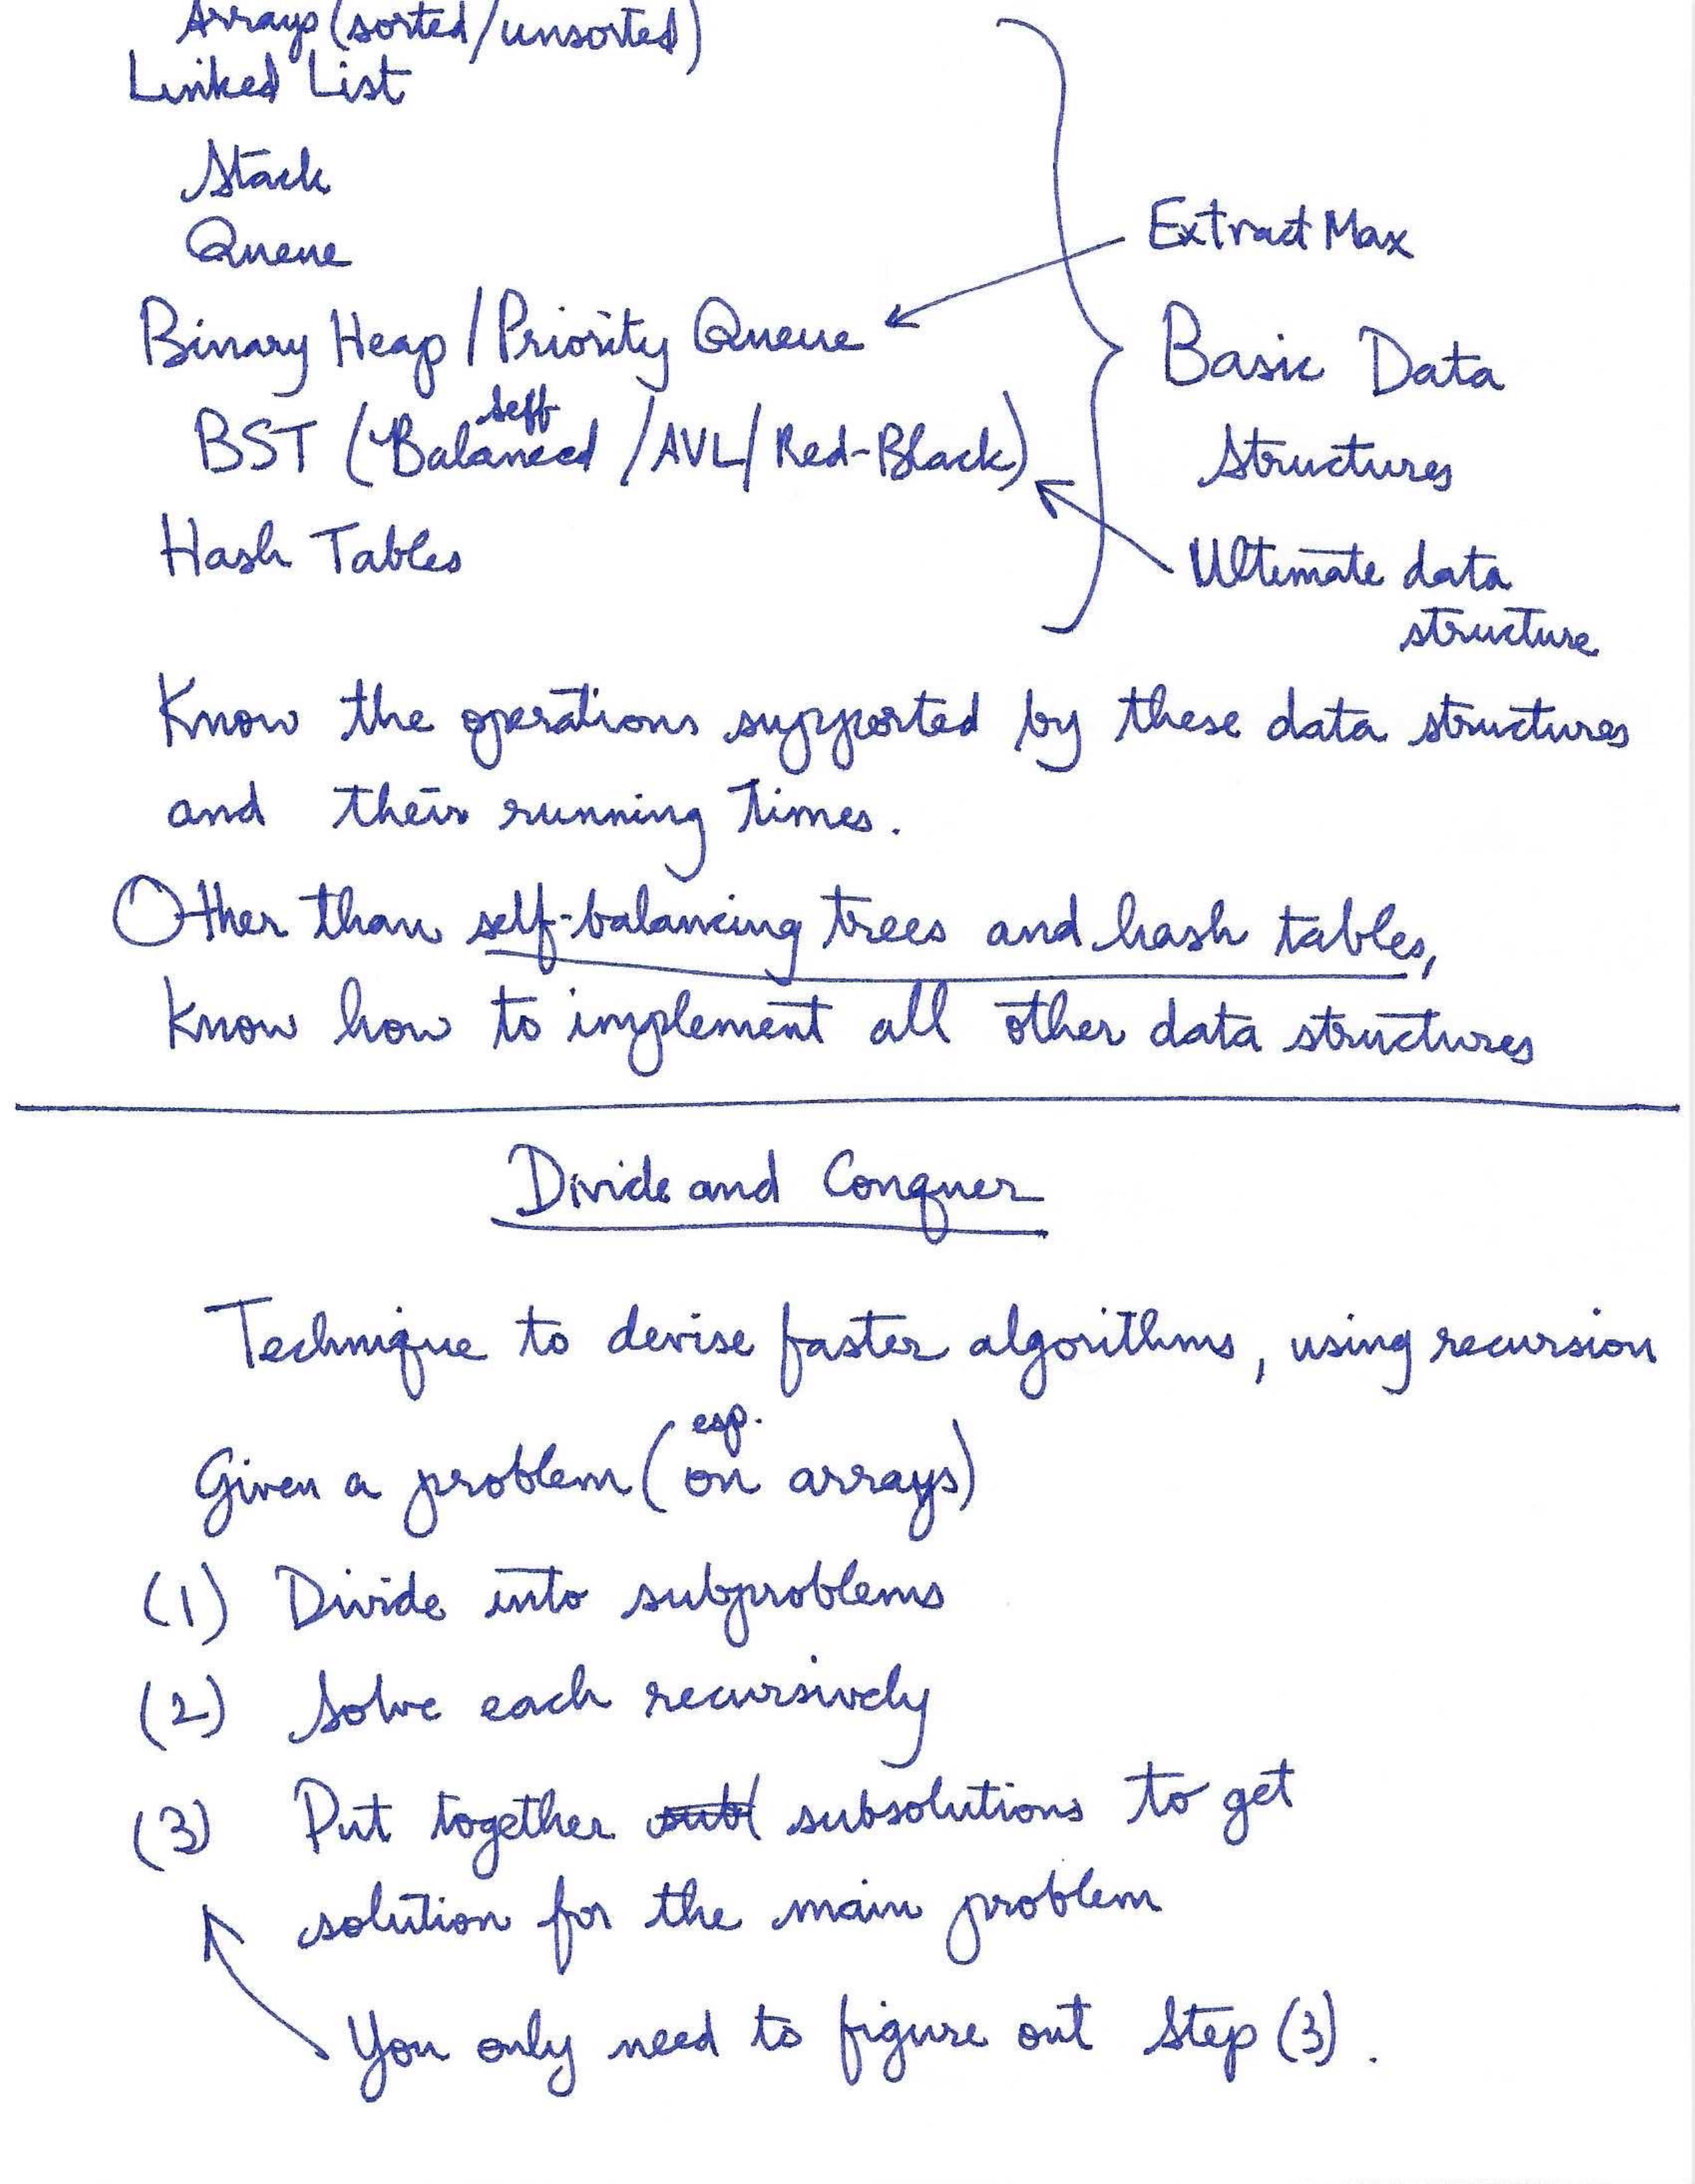 Arrays (sorted/unsorted)
Linked List
Stack
Queue
Extract Max
Binary Heap / Priority Queue
Basic Data
Structures
self
BST (Balanced / AVL / Red-Black)
Ultimate data
structure
Hash Tables
Know the operations supported by these data structures
and their running times.
Other than self-balancing trees and hash tables,
know how to implement all other data structures
Divide and Conquer
Technique to devise faster algorithms, using recursion
esp.
Given a problem (on arrays)
(1) Divide into subproblems
(2) Solve each recursively
(3) Put together sub subsolutions to get
solution for the main problem
You only need to figure out Step (3).